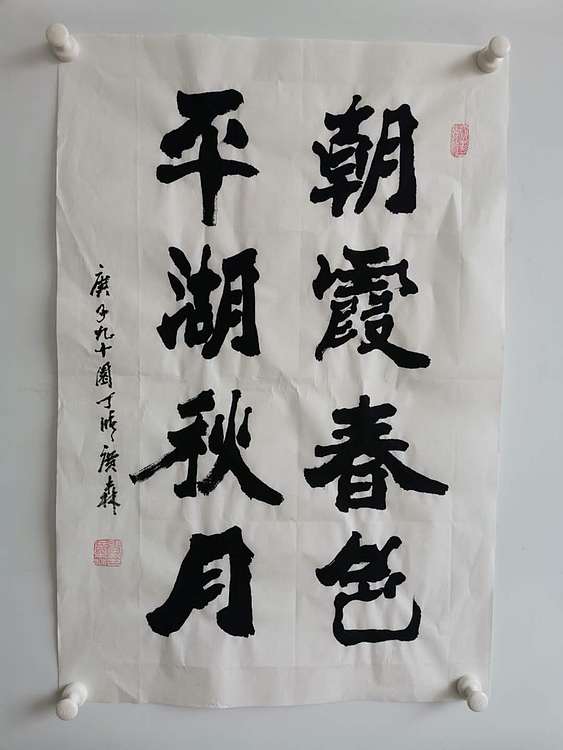 朝霞春色
平湖秋月
庚子九十園丁時廣森